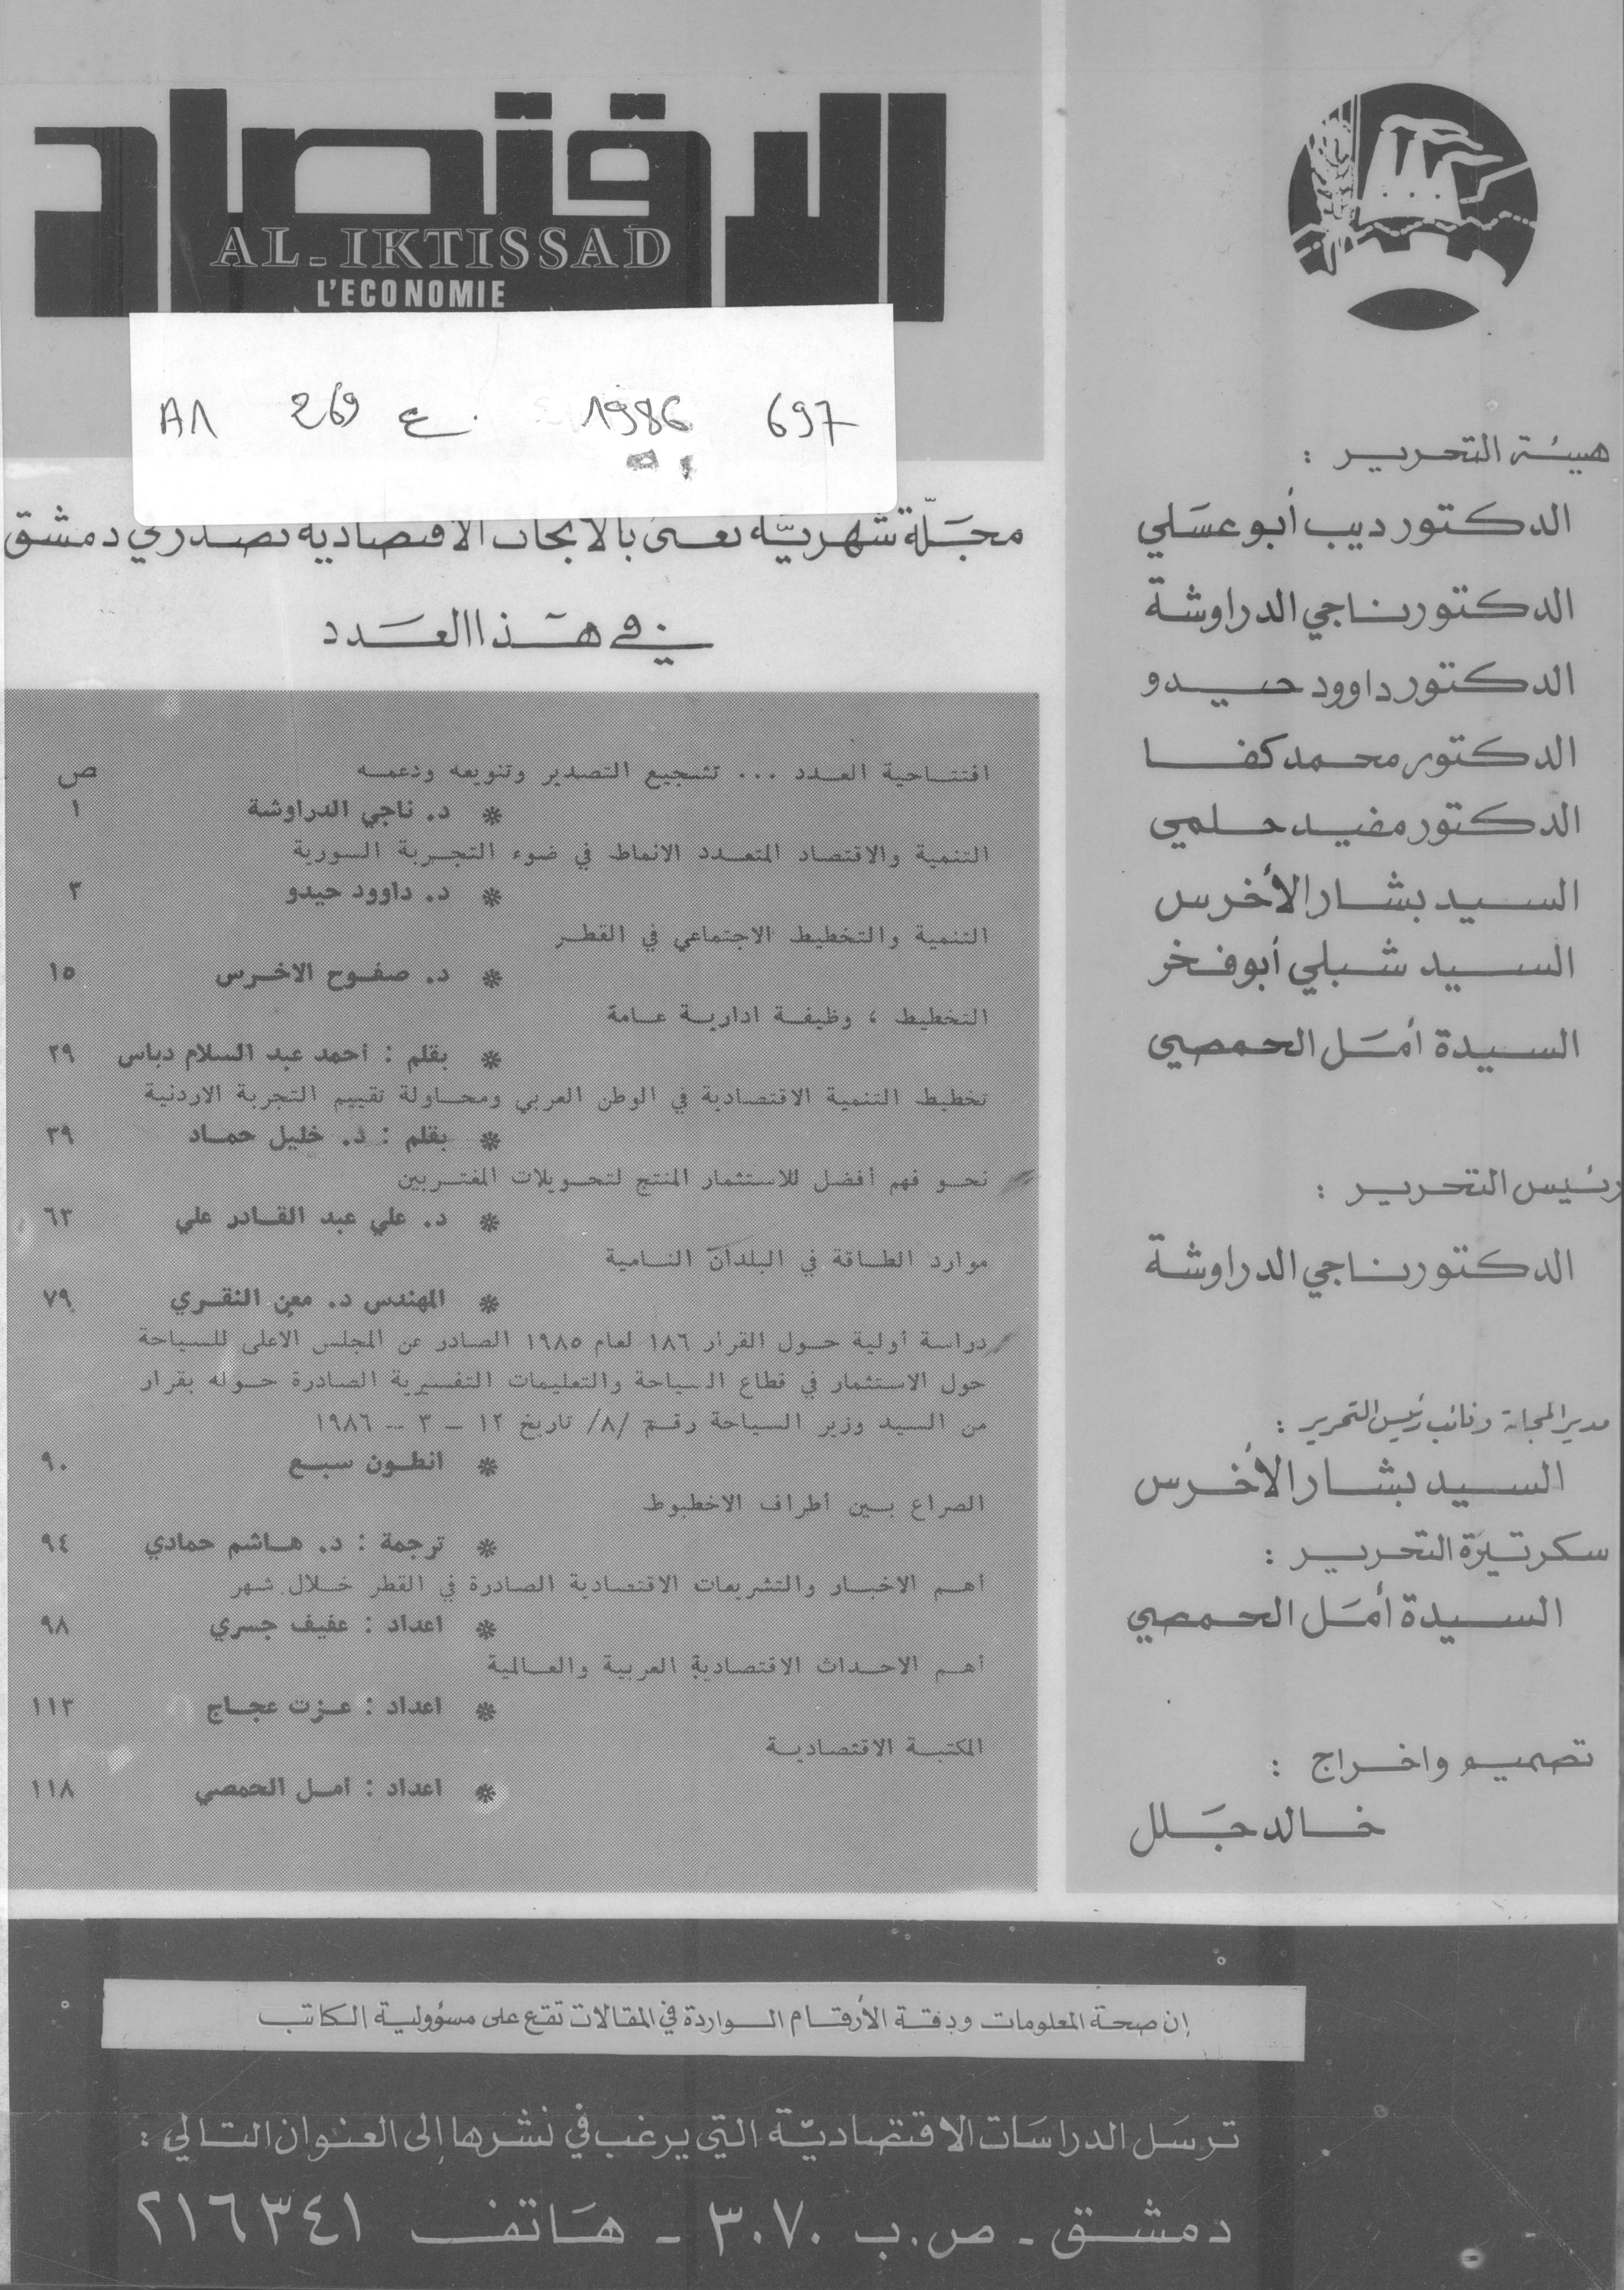 الاقتصاد
AL-IKTISSAD
L'ECONOMIE
A1 269 ع 1986 697
مجَلّة شهريّة تعنى بالأبحاث الاقتصادية تصدر في دمشق
في هَذا العَدد
افتتاحية العدد ... تشجيع التصدير وتنويعه ودعمه ص
* د. ناجي الدراوشة ١
التنمية والاقتصاد المتعدد الانماط في ضوء التجربة السورية
* د. داوود حيدو ٣
التنمية والتخطيط الاجتماعي في القطر
* د. صفوح الاخرس ١٥
التخطيط ، وظيفة ادارية عامة
* بقلم : احمد عبد السلام دباس ٢٩
تخطيط التنمية الاقتصادية في الوطن العربي ومحاولة تقييم التجربة الاردنية
* بقلم : د. خليل حماد ٣٩
نحو فهم أفضل للاستثمار المنتج لتحويلات المغتربين
* د. علي عبد القادر علي ٦٣
موارد الطاقة في البلدان النامية
* المهندس د. معن النقري ٧٩
دراسة أولية حول القرار ١٨٦ لعام ١٩٨٥ الصادر عن المجلس الاعلى للسياحة
حول الاستثمار في قطاع السياحة والتعليمات التفسيرية الصادرة حوله بقرار
من السيد وزير السياحة رقم /٨/ تاريخ ١٢ - ٣ - ١٩٨٦
* انطون سبع ٩٠
الصراع بين أطراف الاخطبوط
* ترجمة : د. هاشم حمادي ٩٤
أهم الاخبار والتشريعات الاقتصادية الصادرة في القطر خلال شهر
* اعداد : عفيف جسري ٩٨
أهم الاحداث الاقتصادية العربية والعالمية
* اعداد : عزت عجاج ١١٣
المكتبة الاقتصادية
* اعداد : امل الحمصي ١١٨
هيئة التحرير :
الدكتور ديب أبو عسَلي
الدكتور ناجي الدراوشة
الدكتور داوود حيدو
الدكتور محمد كفا
الدكتور مفيد حلمي
السيد بشار الأخرس
السيد شبلي أبو فخر
السيدة أمَل الحمصي
رئيس التحرير :
الدكتور ناجي الدراوشة
مدير المجلة ونائب رئيس التحرير :
السيد بشار الأخرس
سكرتيرة التحرير :
السيدة أمَل الحمصي
تصميم واخراج :
خالد جَلل
إن صحة المعلومات ودقة الأرقام الواردة في المقالات تقع على مسؤولية الكاتب
ترسَل الدراسَات الاقتصاديّة التي يرغب في نشرها إلى العنوان التالي :
دمشق - ص.ب ٣٠٧٠ - هَاتف ٢١٦٣٤١